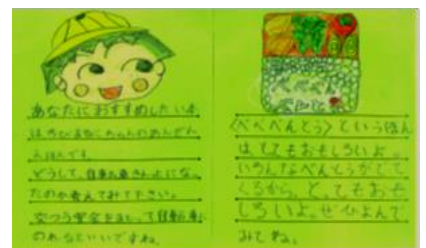 あなたにおすすめしたい本
はちびまる子ちゃんのあんぜん
えほんです。
どうして、自転車
たのか考えてみてください。
交つう安全をまもって自転車に
のれるといいですね。
〈べべべんとう〉というほん
は、とてもおもしろいよ。
いろんなべんとうがでて
くるから。とてもおも
しろいよ。ぜひよんで
みてね。